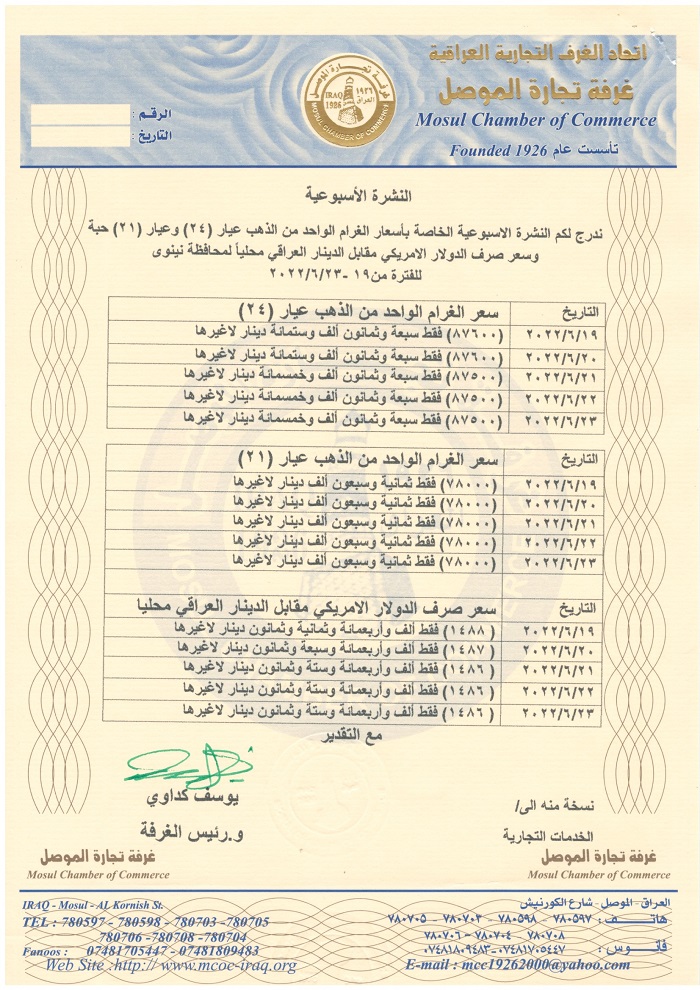 اتحاد الغرف التجارية العراقية
غرفة تجارة الموصل
Mosul Chamber of Commerce
تأسست عام Founded 1926
غرفة تجارة الموصل
IRAQ ١٩٢٦
1926 العراق
MOSUL CHAMBER OF COMMERCE
الرقم :
التاريخ :
النشرة الأسبوعية
ندرج لكم النشرة الاسبوعية الخاصة بأسعار الغرام الواحد من الذهب عيار (٢٤) وعيار (٢١) حبة
وسعر صرف الدولار الامريكي مقابل الدينار العراقي محلياً لمحافظة نينوى
للفترة من ١٩ -٢٠٢٢/٦/٢٣
التاريخ سعر الغرام الواحد من الذهب عيار (٢٤)
٢٠٢٢/٦/١٩ (٨٧٦٠٠) فقط سبعة وثمانون ألف وستمائة دينار لاغيرها
٢٠٢٢/٦/٢٠ (٨٧٦٠٠) فقط سبعة وثمانون ألف وستمائة دينار لاغيرها
٢٠٢٢/٦/٢١ (٨٧٥٠٠) فقط سبعة وثمانون ألف وخمسمائة دينار لاغيرها
٢٠٢٢/٦/٢٢ (٨٧٥٠٠) فقط سبعة وثمانون ألف وخمسمائة دينار لاغيرها
٢٠٢٢/٦/٢٣ (٨٧٥٠٠) فقط سبعة وثمانون ألف وخمسمائة دينار لاغيرها
التاريخ سعر الغرام الواحد من الذهب عيار (٢١)
٢٠٢٢/٦/١٩ (٧٨٠٠٠) فقط ثمانية وسبعون ألف دينار لاغيرها
٢٠٢٢/٦/٢٠ (٧٨٠٠٠) فقط ثمانية وسبعون ألف دينار لاغيرها
٢٠٢٢/٦/٢١ (٧٨٠٠٠) فقط ثمانية وسبعون ألف دينار لاغيرها
٢٠٢٢/٦/٢٢ (٧٨٠٠٠) فقط ثمانية وسبعون ألف دينار لاغيرها
٢٠٢٢/٦/٢٣ (٧٨٠٠٠) فقط ثمانية وسبعون ألف دينار لاغيرها
التاريخ سعر صرف الدولار الامريكي مقابل الدينار العراقي محليا
٢٠٢٢/٦/١٩ (١٤٨٨ ) فقط ألف وأربعمائة وثمانية وثمانون دينار لاغيرها
٢٠٢٢/٦/٢٠ (١٤٨٧ ) فقط ألف وأربعمائة وسبعة وثمانون دينار لاغيرها
٢٠٢٢/٦/٢١ (١٤٨٦ ) فقط ألف وأربعمائة وستة وثمانون دينار لاغيرها
٢٠٢٢/٦/٢٢ (١٤٨٦ ) فقط ألف وأربعمائة وستة وثمانون دينار لاغيرها
٢٠٢٢/٦/٢٣ (١٤٨٦ ) فقط ألف وأربعمائة وستة وثمانون دينار لاغيرها
مع التقدير
يوسف كداوي
و.رئيس الغرفة
نسخة منه الى/
الخدمات التجارية
غرفة تجارة الموصل
Mosul Chamber of Commerce
غرفة تجارة الموصل
Mosul Chamber of Commerce
العراق - الموصل - شارع الكورنيش
هاتف : ٧٨٠٥٩٧ - ٧٨٠٥٩٨ - ٧٨٠٧٠٣ - ٧٨٠٧٠٥
٧٨٠٧٠٨ - ٧٨٠٧٠٤ - ٧٨٠٧٠٦
فانوس : ٠٧٤٨١٧٠٥٤٤٧-٠٧٤٨١٨٠٩٤٨٣
E-mail : mcc19262000@yahoo.com
IRAQ - Mosul - AL Kornish St.
TEL : 780597 - 780598 - 780703 -780705
780706 -780708 -780704
Fanoos : 07481705447 - 07481809483
Web Site :http:// www.mcoc-iraq.org